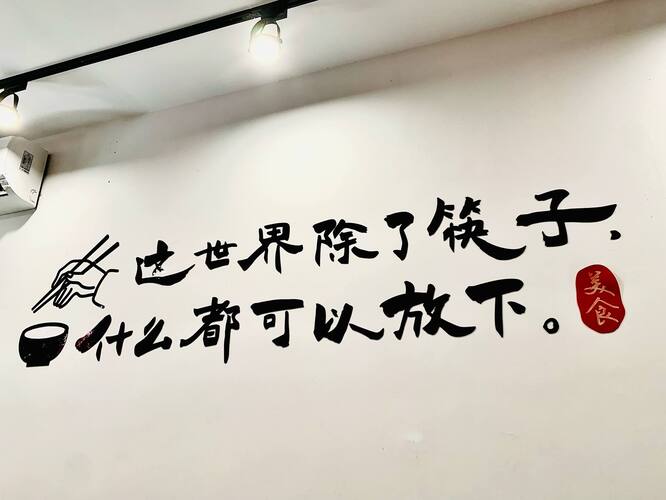 这世界除了筷子,
什么都可以放下。
美食